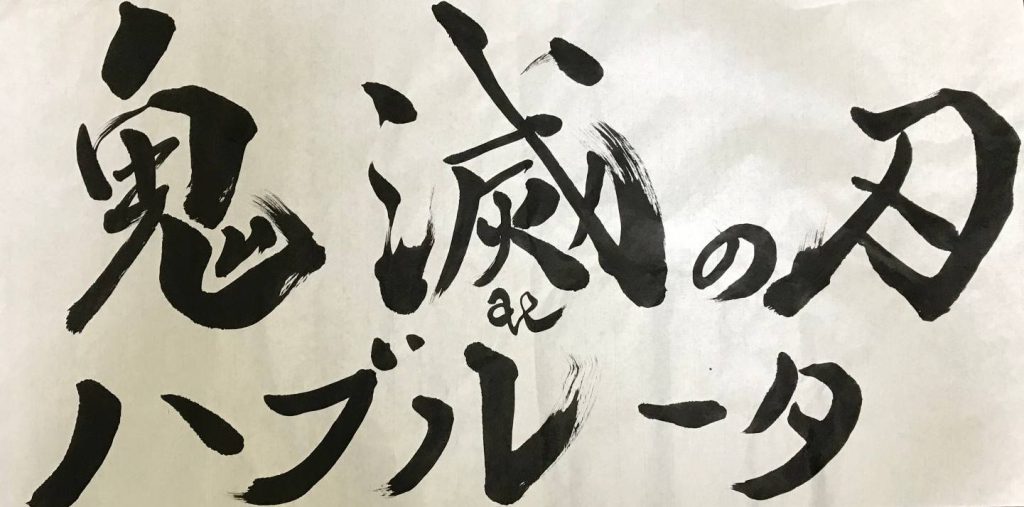 鬼滅の刃
ae
ハブルータ